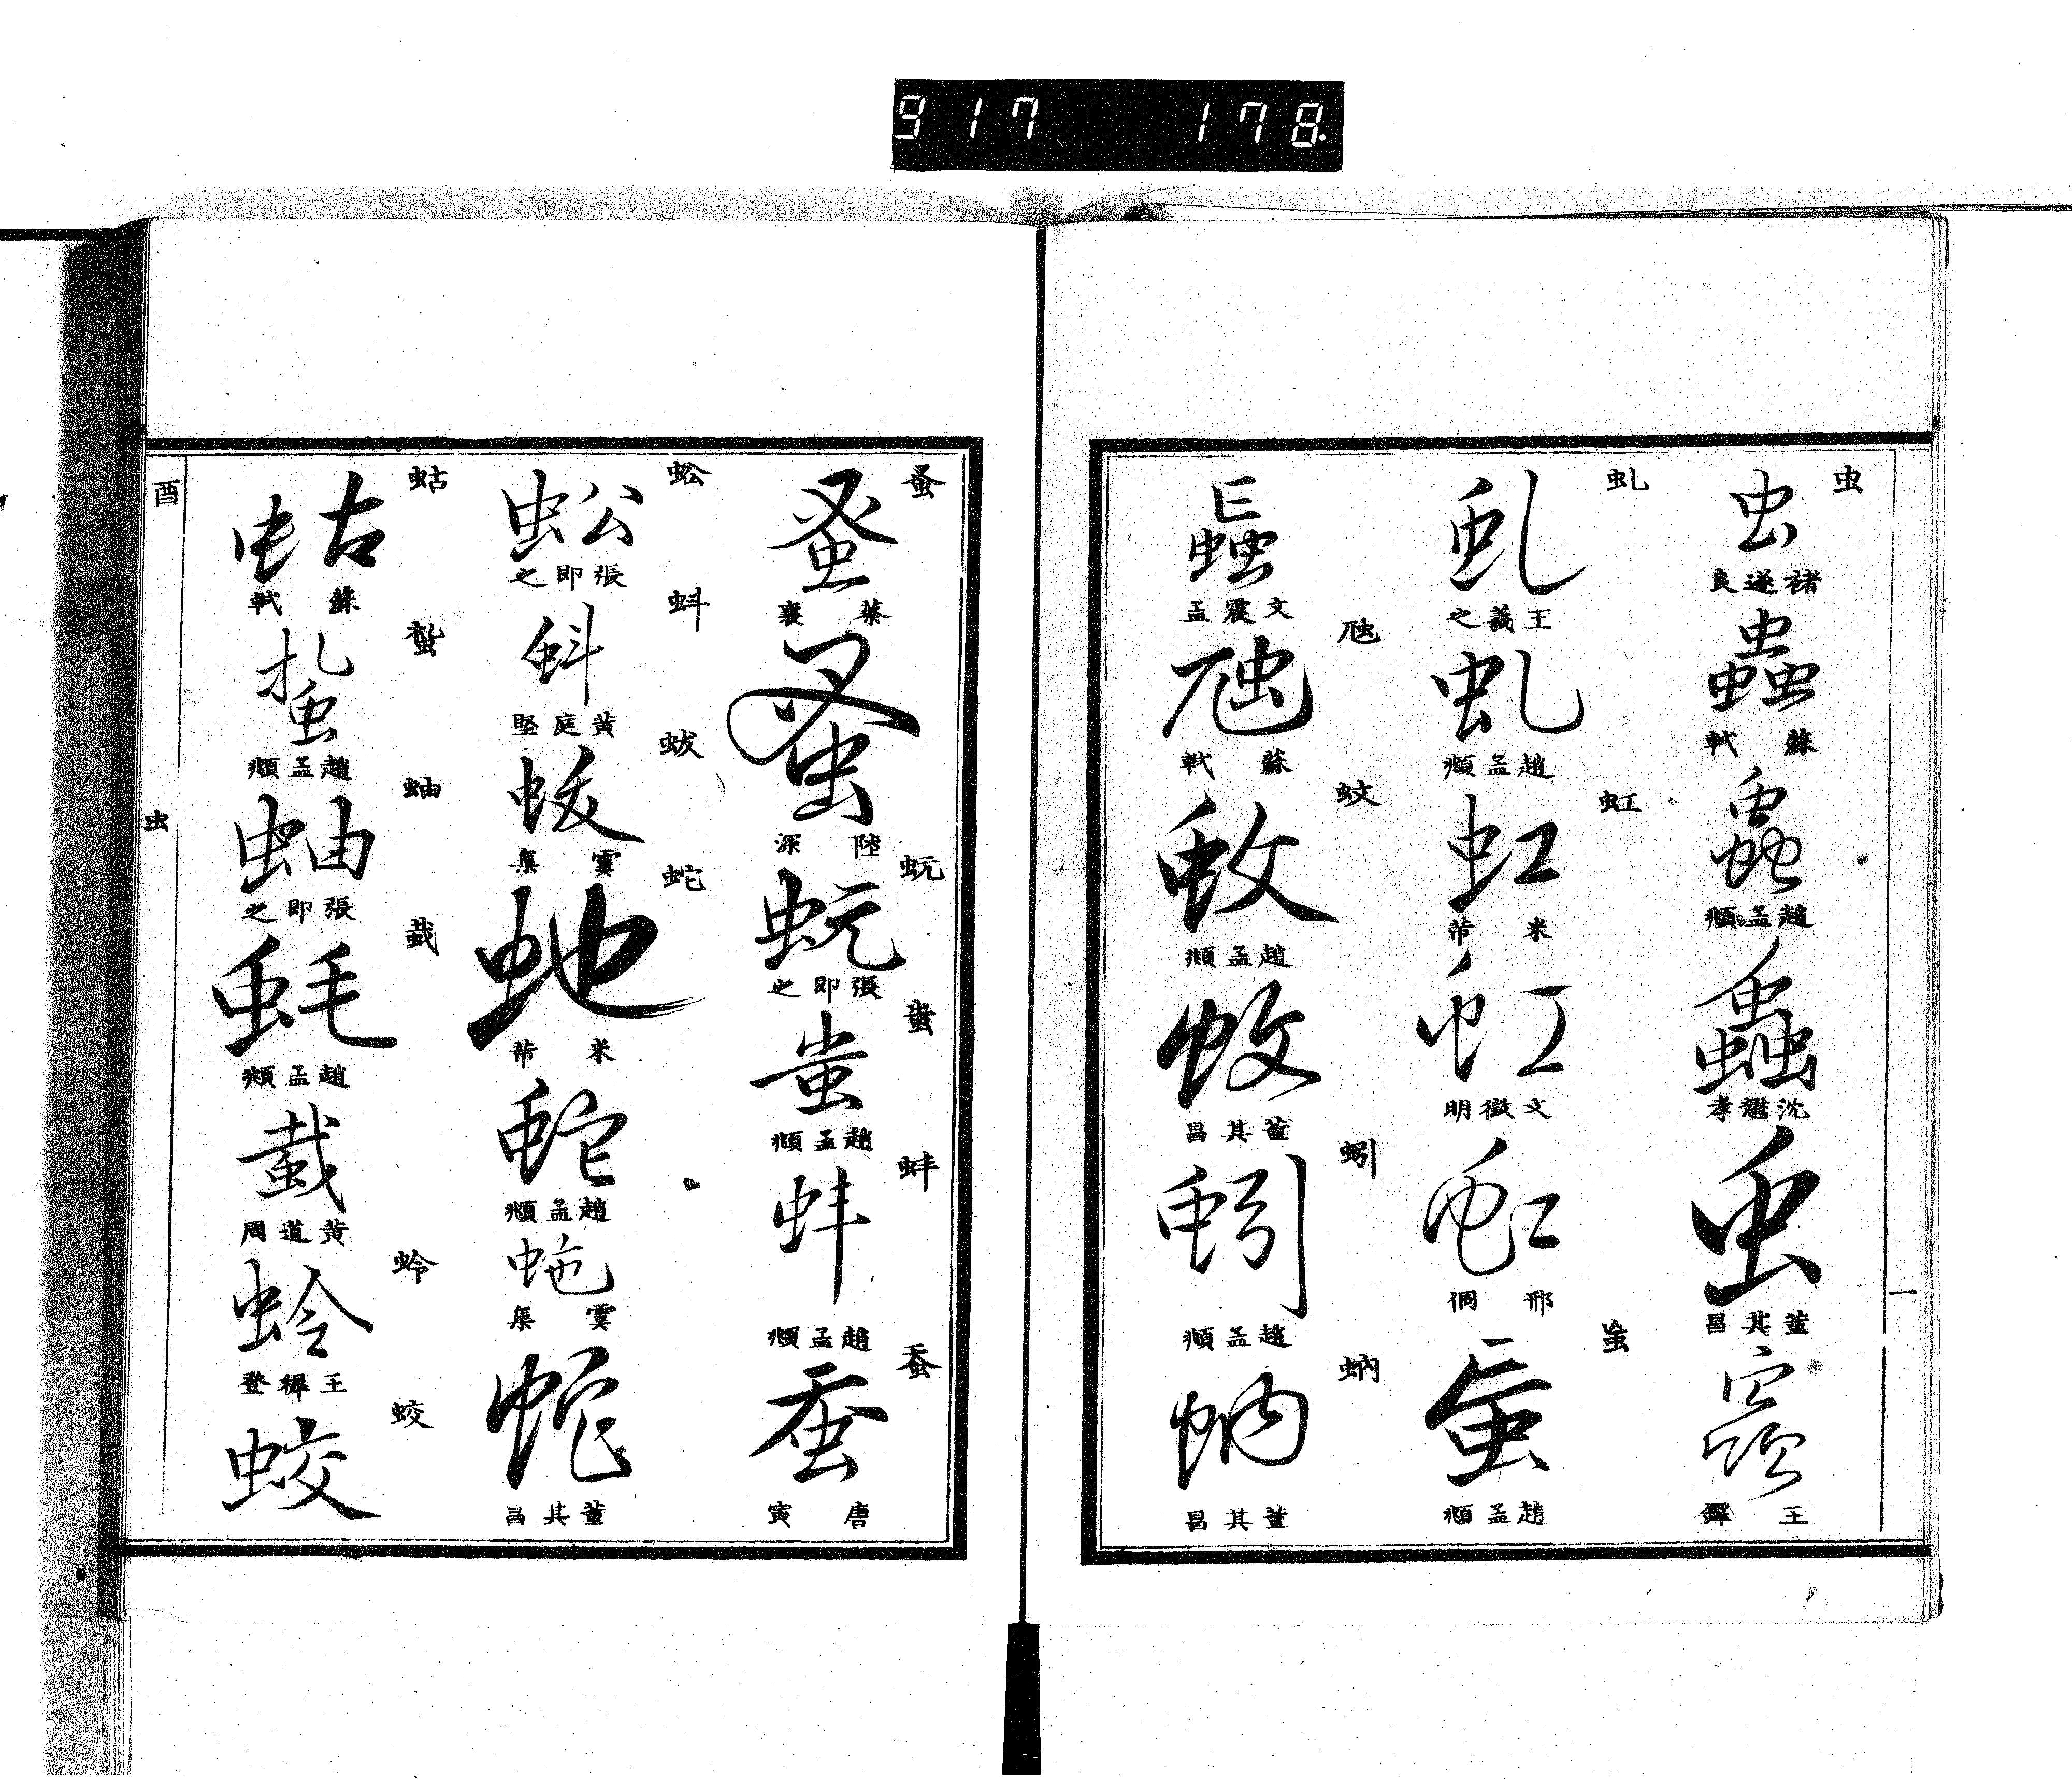 917 178.
虫
虫
褚遂良
蟲
蘇軾
蟲
趙孟頫
蟲
沈懋孝
虫
董其昌
王鐸
一
虬
虬
王羲之
虬
趙孟頫
虹
虹
米芾
虹
文徵明
虹
邢侗
蚩
趙孟頫
文震孟
虺
虺
蘇軾
蚊
蚊
趙孟頫
蚊
董其昌
蚓
蚓
趙孟頫
蚋
蚋
董其昌
蚤
蚤
蔡襄
蚤
陸深
蚖
蚖
張即之
蚩
蚩
趙孟頫
蚌
蚌
趙孟頫
蚕
蚕
唐寅
蚣
蚣
張即之
蚪
蚪
黃庭堅
蛂
蛂
虞集
蛇
虵
米芾
蛇
趙孟頫
虵
虞集
蛇
董其昌
蛄
蛄
蘇軾
蚻
趙孟頫
蚰
蚰
張即之
蛓
蚝
趙孟頫
蛓
黃道周
蛉
蛉
王穉登
蛟
蛟
酉
虫